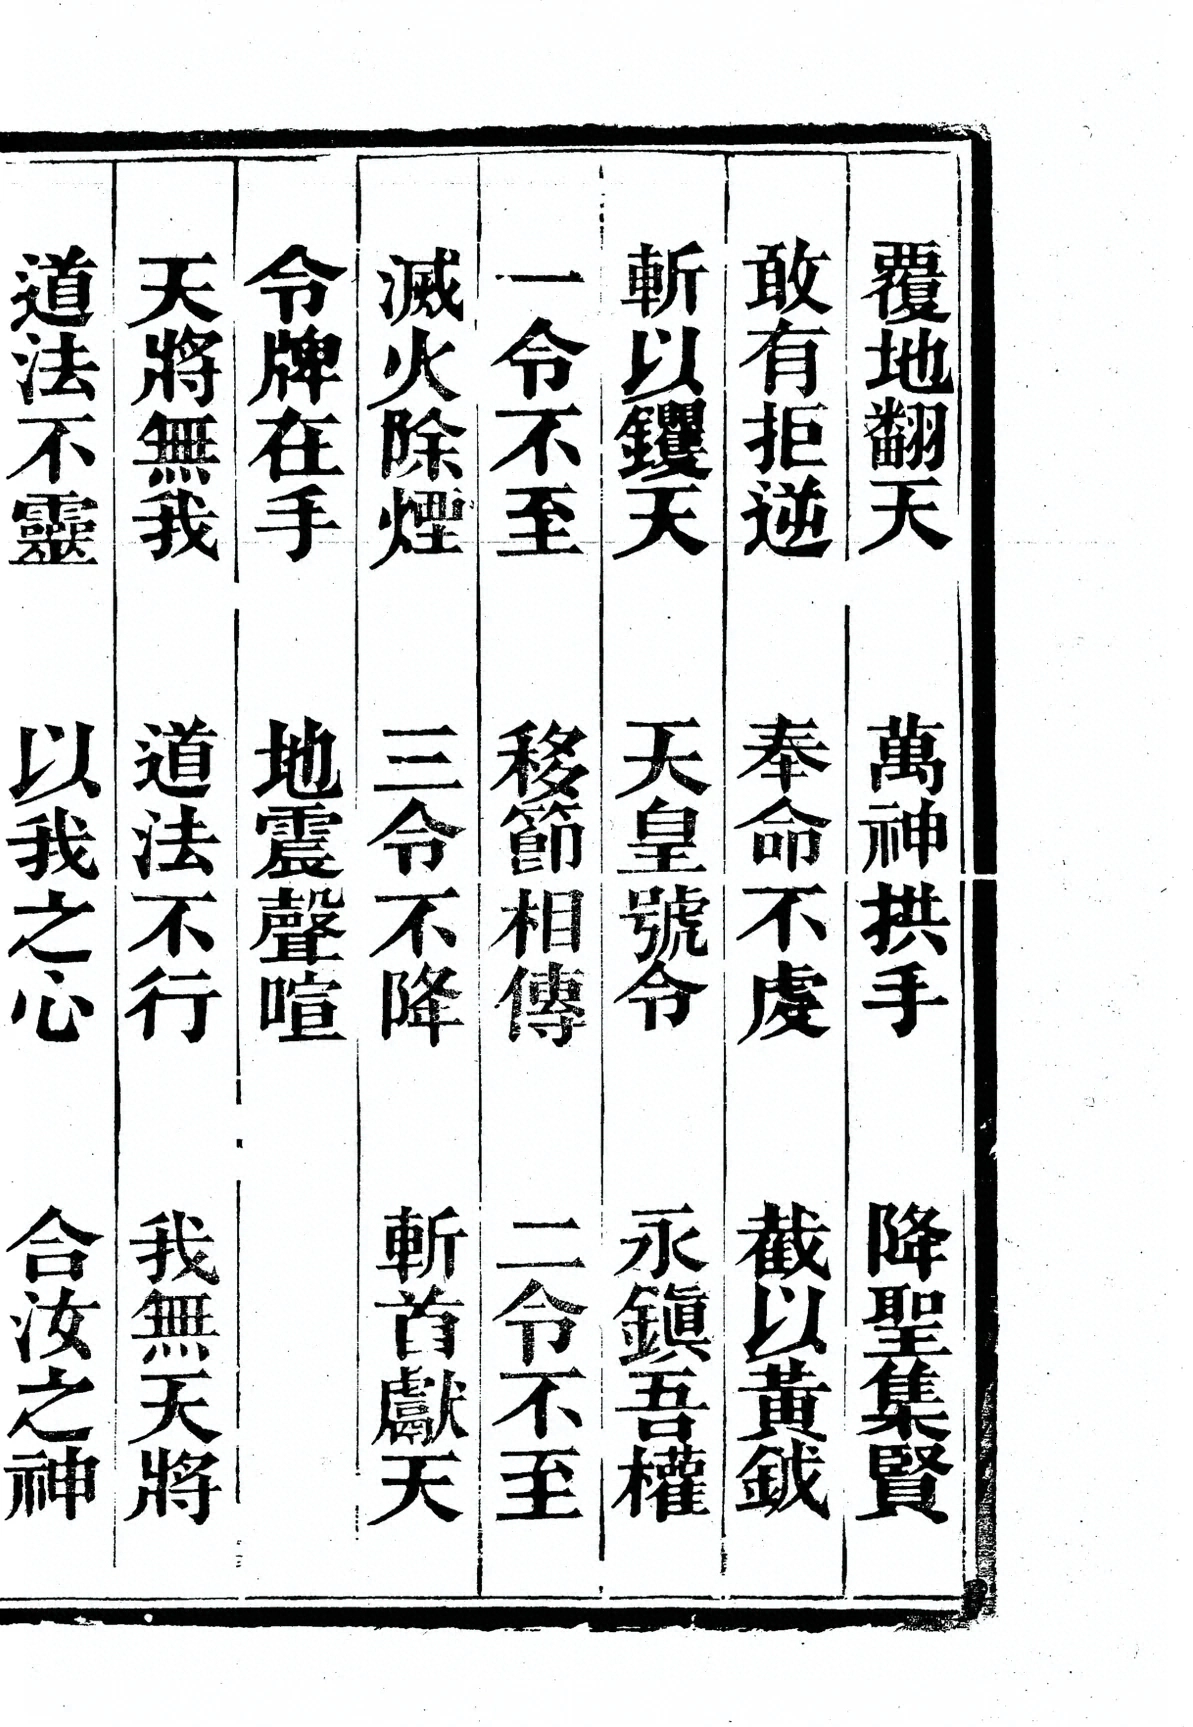 覆地翻天　萬神拱手　降聖集賢
敢有拒逆　奉命不虔　截以黃鉞
斬以钁天　天皇號令　永鎭吾權
一令不至　移節相傳　二令不至
滅火除煙　三令不降　斬首獻天
令牌在手　地震聲喧
天將無我　道法不行　我無天將
道法不靈　以我之心　合汝之神